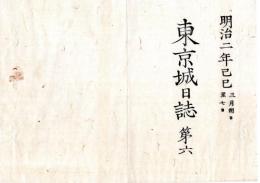 明治二年己巳 三月朔日 至七日
東京城日誌 第六